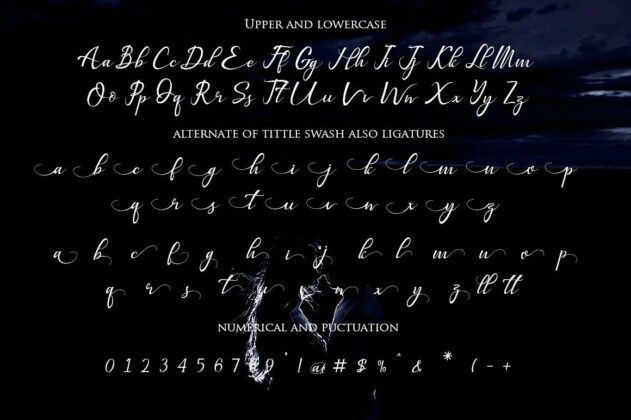 Upper and lowercase
Aa Bb Cc Dd Ee Ff Gg Hh Ii Jj Kk Ll Mm
Oo Pp Qq Rr Ss Tt Uu Vv Ww Xx Yy Zz
alternate of tittle swash also ligatures
a b c f g h i j k l m n o p
q r s t u v n x y z
a b c f g h i j k h m n o p
q r s t u n x y z ll tt
numerical and puctuation
0 1 2 3 4 5 6 7 8 9 ' ! @ # $ % ^ & * ( - +